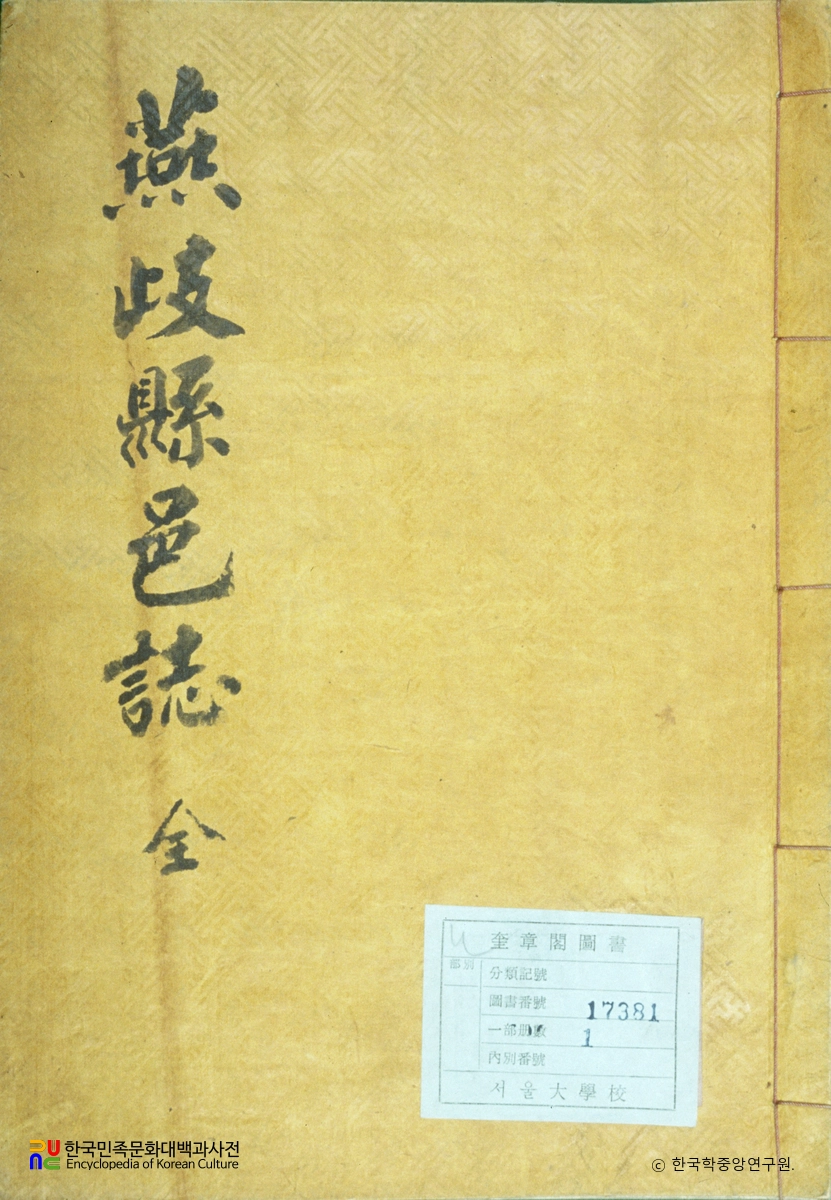 燕歧縣邑誌 全
奎章閣圖書
部別
分類記號
圖書番號 17381
一部册數 1
內別番號
서울大學校
한국민족문화대백과사전
Encyclopedia of Korean Culture
© 한국학중앙연구원.